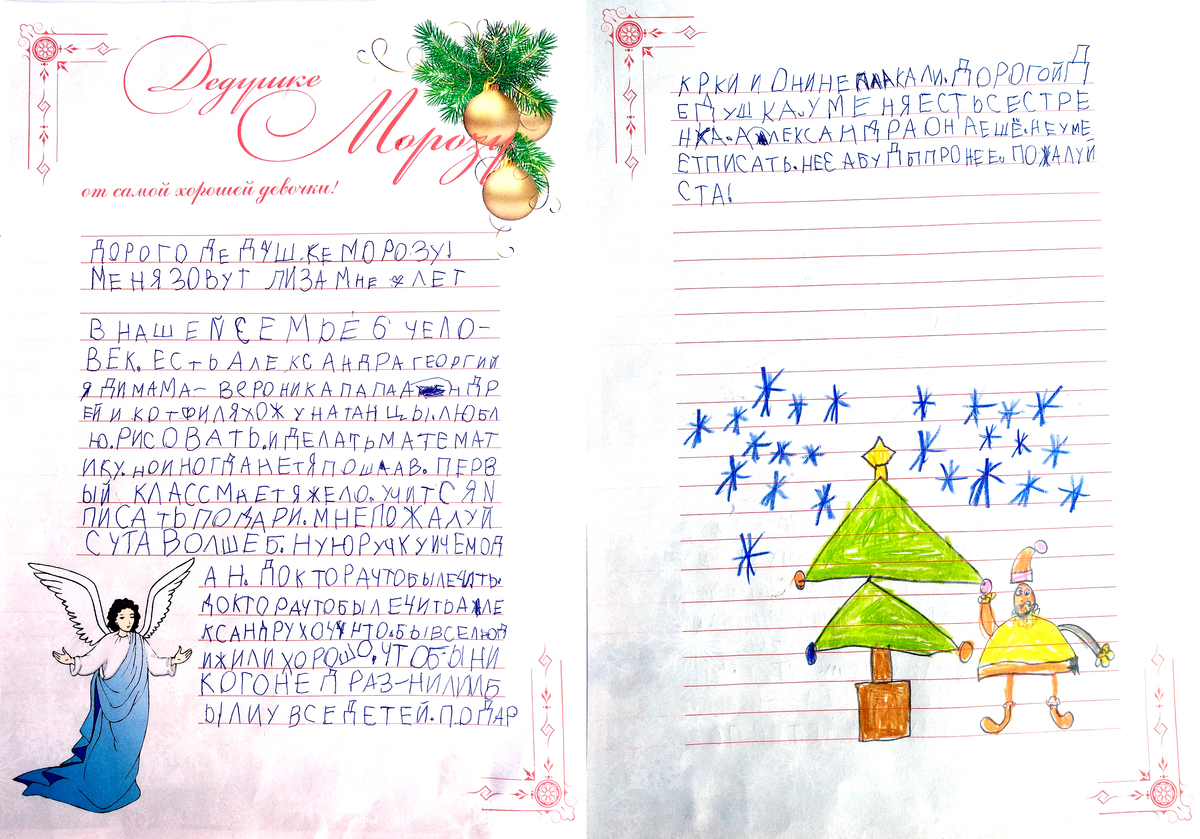 Дедушке
Морозу
от самой хорошей девочки!
ДОРОГО ДЕДУШ.КЕ МОРОЗУ!
МЕНЯ ЗОВУТ ЛИЗА МНЕ ЛЕТ
В НАШЕЙ СЕМЬЕ 6 ЧЕЛО-
ВЕК. ЕСТЬ АЛЕКСАНДРА ГЕОРГИЙ
Я ДИ МАМА- ВЕРОНИКА ПАПА АНДР
ЕЙ И КОТ ФИЛЯ ХОЖУ НА ТАНЦЫ. ЛЮБЛ
Ю. РИСОВАТЬ. И ДЕЛАТЬ МАТЕМАТ
ИКУ. НО ИНОГДА НЕТ Я ПОШЛА В. ПЕРВ
ЫЙ КЛАСС МНЕ ТЯЖЕЛО. УЧИТСЯ И
ПИСАТЬ ПОДАРИ. МНЕ ПОЖАЛУЙ
СУТА ВОЛШЕБ. НУЮ РУЧКУ И ЧЕМОД
АН. ДОКТОРА ЧТОБЫ ЛЕЧИТЬ.
ДОКТОРА ЧТОБЫ ЛЕЧИТЬ АЛЕ
КСАНДРУ ХОЧУ ЧТО.БЫ ВСЕ ЛЮД
И ЖИЛИ ХОРОШО. ЧТОБЫ НИ
КОГО НЕ ДРАЗ-НИЛИ ИБ
ЫЛИ У ВСЕ ДЕТЕЙ. ПОДАР
КРКИ И ОНИ НЕ ПЛАКАЛИ. ДОРОГОЙ Д
ЕДУШКА. У МЕНЯ ЕСТЬ СЕСТРЕ
НКА. АЛЕКСАНДРА ОНА ЕЩЁ. НЕ УМЕ
ЕТ ПИСАТЬ. НЕЕ АБУДЬ ПРО НЕЕ. ПОЖАЛУЙ
СТА!